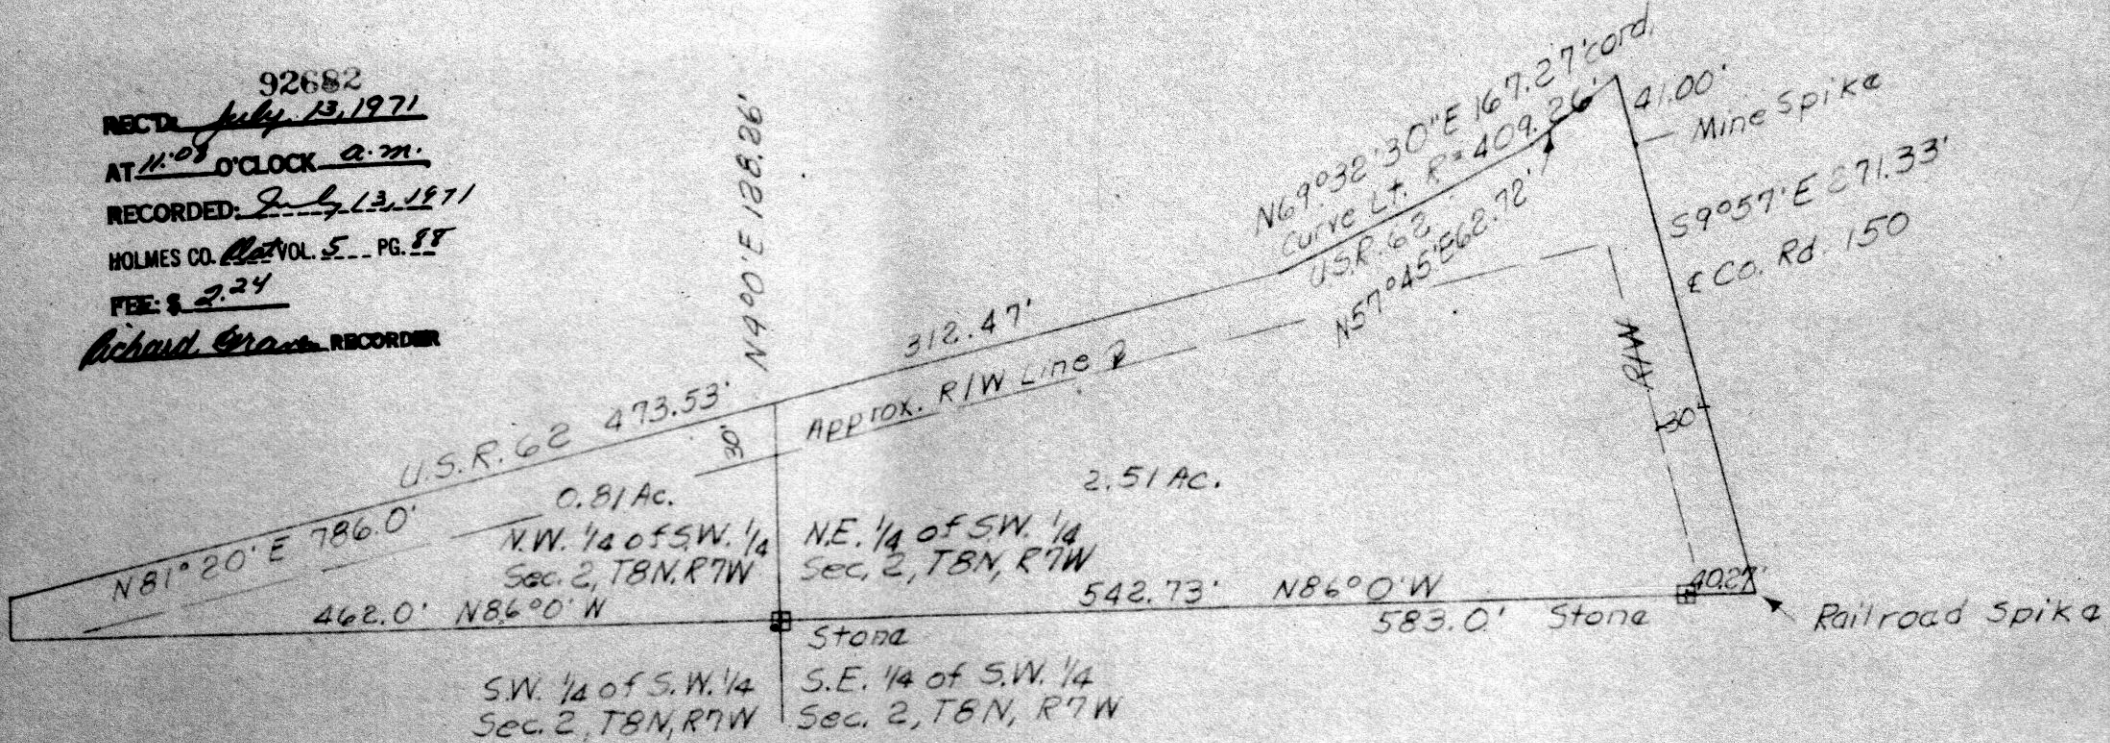 92682
REC'D. July 13, 1971
AT 11:08 O'CLOCK a.m.
RECORDED: July 13, 1971
HOLMES CO. Plat VOL. 5 PG. 88
FEE: $ 2.24
Richard RECORDER
N4°0'E 188.26'
N69°32'30"E 167.27' cord.
Curve Lt. R=409.26'
U.S.R. 62
N57°45'E 62.72'
41.00'
Mine Spike
S9°57'E 271.33'
℄ Co. Rd. 150
R/W
30'
312.47'
Approx. R/W Line
U.S.R. 62 473.53'
30'
N81°20'E 786.0'
0.81 Ac.
2.51 Ac.
N.W. 1/4 of S.W. 1/4
Sec. 2, T8N, R7W
N.E. 1/4 of S.W. 1/4
Sec. 2, T8N, R7W
462.0' N86°0'W
542.73' N86°0'W
40.27'
583.0' Stone
Railroad Spike
Stone
S.W. 1/4 of S.W. 1/4
Sec. 2, T8N, R7W
S.E. 1/4 of S.W. 1/4
Sec. 2, T8N, R7W